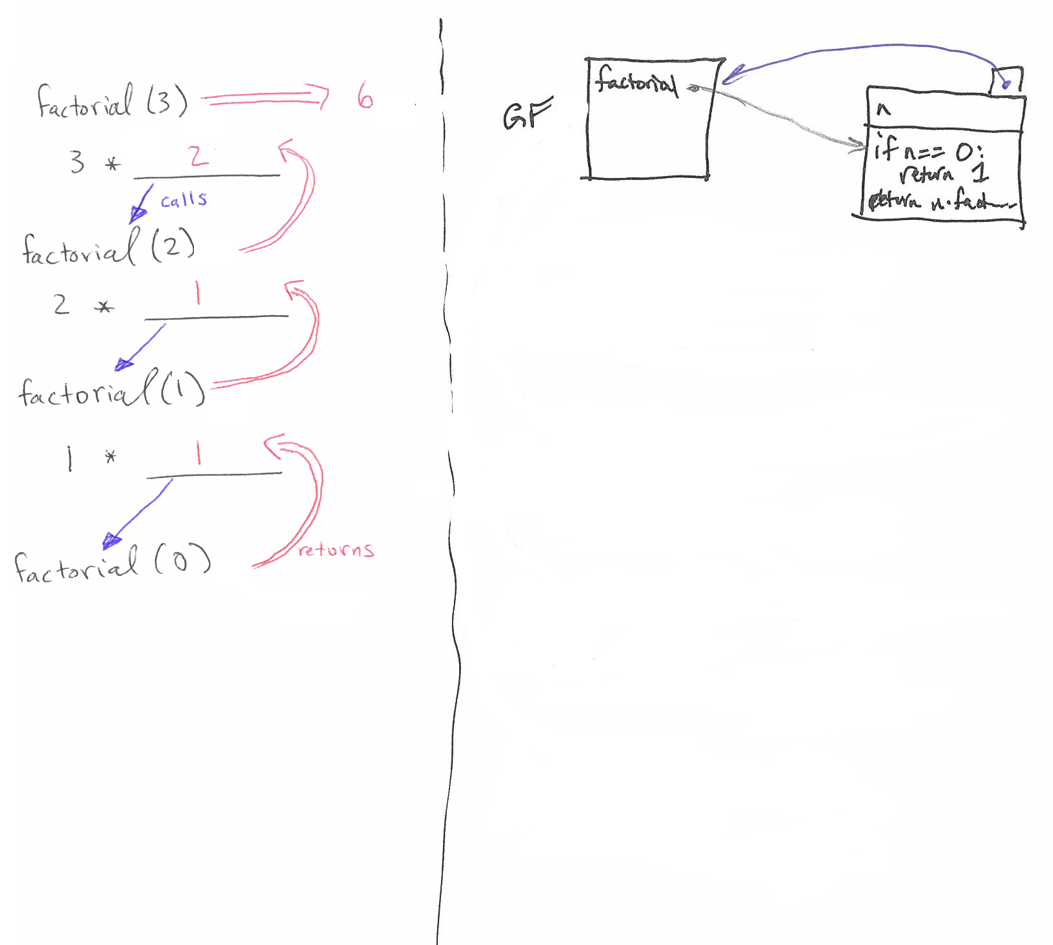 factorial (3) 6
3 * 2
calls
factorial (2)
2 * 1
factorial (1)
1 * 1
returns
factorial (0)
GF
factorial
n
if n== 0:
return 1
return n·fact